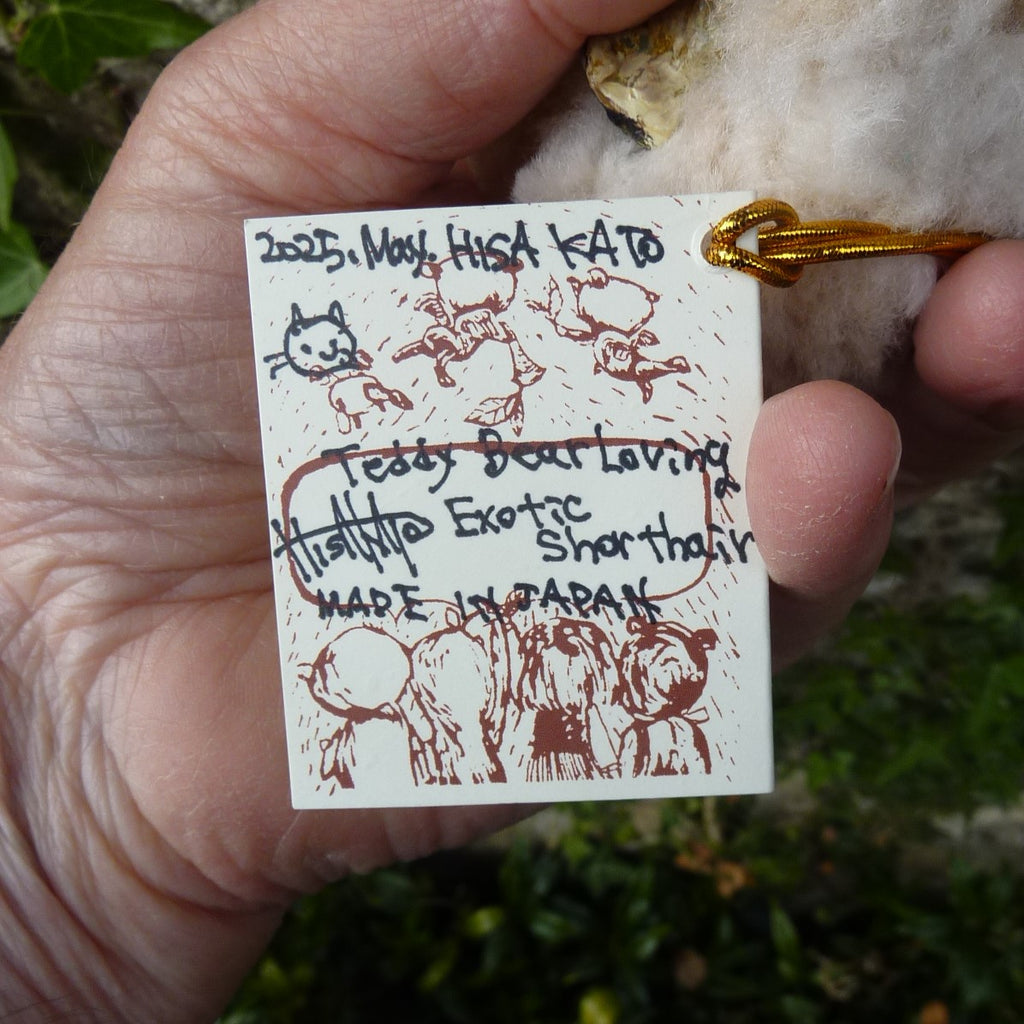 2025. May. HISA KATO
Teddy Bear Loving
Exotic
Shorthair
MADE IN JAPAN